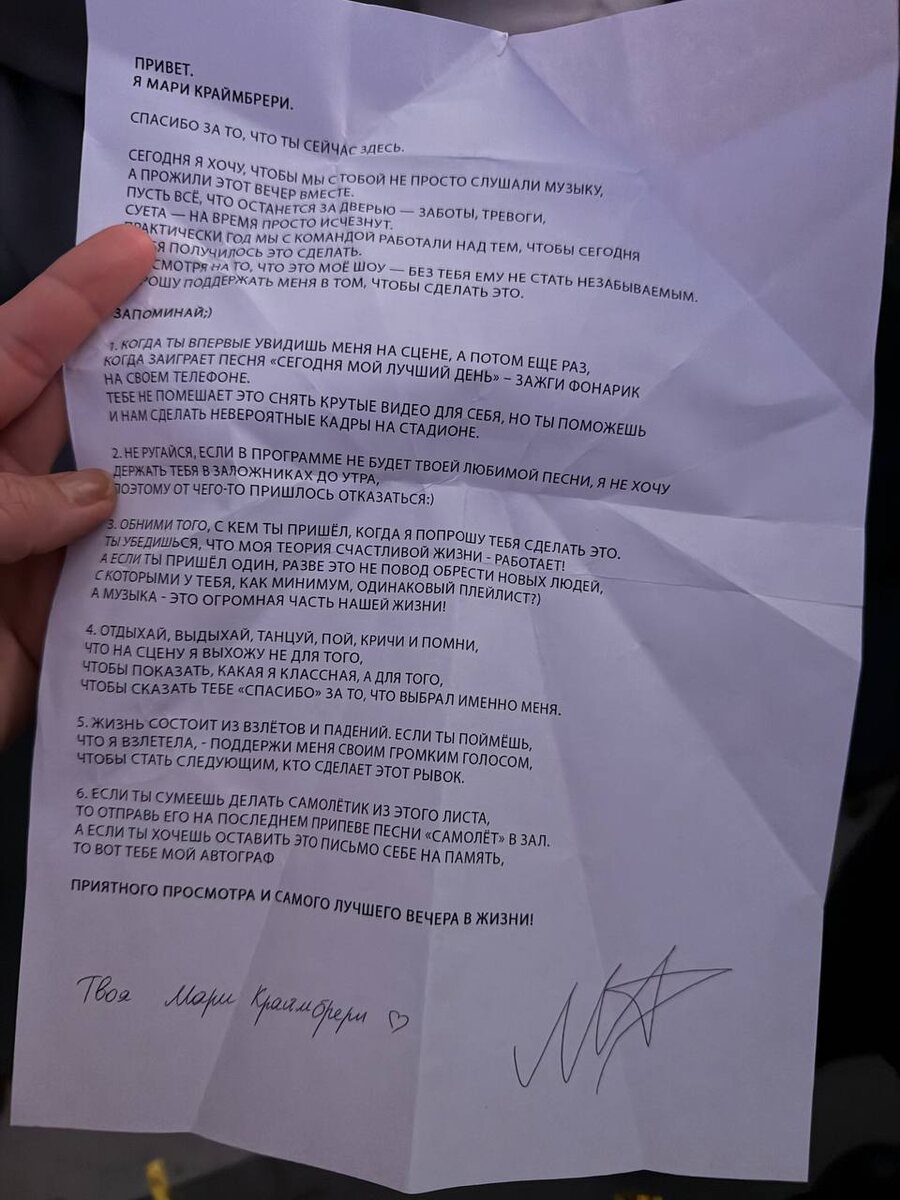 ПРИВЕТ.
Я МАРИ КРАЙМБРЕРИ.
СПАСИБО ЗА ТО, ЧТО ТЫ СЕЙЧАС ЗДЕСЬ.
СЕГОДНЯ Я ХОЧУ, ЧТОБЫ МЫ С ТОБОЙ НЕ ПРОСТО СЛУШАЛИ МУЗЫКУ,
А ПРОЖИЛИ ЭТОТ ВЕЧЕР ВМЕСТЕ.
ПУСТЬ ВСЁ, ЧТО ОСТАНЕТСЯ ЗА ДВЕРЬЮ — ЗАБОТЫ, ТРЕВОГИ,
СУЕТА — НА ВРЕМЯ ПРОСТО ИСЧЕЗНУТ.
ПРАКТИЧЕСКИ ГОД МЫ С КОМАНДОЙ РАБОТАЛИ НАД ТЕМ, ЧТОБЫ СЕГОДНЯ
ПОЛУЧИЛОСЬ ЭТО СДЕЛАТЬ.
НА ТО, ЧТО ЭТО МОЁ ШОУ — БЕЗ ТЕБЯ ЕМУ НЕ СТАТЬ НЕЗАБЫВАЕМЫМ.
ПОДДЕРЖАТЬ МЕНЯ В ТОМ, ЧТОБЫ СДЕЛАТЬ ЭТО.
ЗАПОМИНАЙ;)
1. КОГДА ТЫ ВПЕРВЫЕ УВИДИШЬ МЕНЯ НА СЦЕНЕ, А ПОТОМ ЕЩЕ РАЗ,
КОГДА ЗАИГРАЕТ ПЕСНЯ «СЕГОДНЯ МОЙ ЛУЧШИЙ ДЕНЬ» – ЗАЖГИ ФОНАРИК
НА СВОЕМ ТЕЛЕФОНЕ.
ТЕБЕ НЕ ПОМЕШАЕТ ЭТО СНЯТЬ КРУТЫЕ ВИДЕО ДЛЯ СЕБЯ, НО ТЫ ПОМОЖЕШЬ
И НАМ СДЕЛАТЬ НЕВЕРОЯТНЫЕ КАДРЫ НА СТАДИОНЕ.
2. НЕ РУГАЙСЯ, ЕСЛИ В ПРОГРАММЕ НЕ БУДЕТ ТВОЕЙ ЛЮБИМОЙ ПЕСНИ, Я НЕ ХОЧУ
ДЕРЖАТЬ ТЕБЯ В ЗАЛОЖНИКАХ ДО УТРА,
ПОЭТОМУ ОТ ЧЕГО-ТО ПРИШЛОСЬ ОТКАЗАТЬСЯ:)
3. ОБНИМИ ТОГО, С КЕМ ТЫ ПРИШЁЛ, КОГДА Я ПОПРОШУ ТЕБЯ СДЕЛАТЬ ЭТО.
ТЫ УБЕДИШЬСЯ, ЧТО МОЯ ТЕОРИЯ СЧАСТЛИВОЙ ЖИЗНИ - РАБОТАЕТ!
А ЕСЛИ ТЫ ПРИШЁЛ ОДИН, РАЗВЕ ЭТО НЕ ПОВОД ОБРЕСТИ НОВЫХ ЛЮДЕЙ,
С КОТОРЫМИ У ТЕБЯ, КАК МИНИМУМ, ОДИНАКОВЫЙ ПЛЕЙЛИСТ?)
А МУЗЫКА - ЭТО ОГРОМНАЯ ЧАСТЬ НАШЕЙ ЖИЗНИ!
4. ОТДЫХАЙ, ВЫДЫХАЙ, ТАНЦУЙ, ПОЙ, КРИЧИ И ПОМНИ,
ЧТО НА СЦЕНУ Я ВЫХОЖУ НЕ ДЛЯ ТОГО,
ЧТОБЫ ПОКАЗАТЬ, КАКАЯ Я КЛАССНАЯ, А ДЛЯ ТОГО,
ЧТОБЫ СКАЗАТЬ ТЕБЕ «СПАСИБО» ЗА ТО, ЧТО ВЫБРАЛ ИМЕННО МЕНЯ.
5. ЖИЗНЬ СОСТОИТ ИЗ ВЗЛЁТОВ И ПАДЕНИЙ. ЕСЛИ ТЫ ПОЙМЁШЬ,
ЧТО Я ВЗЛЕТЕЛА, - ПОДДЕРЖИ МЕНЯ СВОИМ ГРОМКИМ ГОЛОСОМ,
ЧТОБЫ СТАТЬ СЛЕДУЮЩИМ, КТО СДЕЛАЕТ ЭТОТ РЫВОК.
6. ЕСЛИ ТЫ СУМЕЕШЬ ДЕЛАТЬ САМОЛЁТИК ИЗ ЭТОГО ЛИСТА,
ТО ОТПРАВЬ ЕГО НА ПОСЛЕДНЕМ ПРИПЕВЕ ПЕСНИ «САМОЛЁТ» В ЗАЛ.
А ЕСЛИ ТЫ ХОЧЕШЬ ОСТАВИТЬ ЭТО ПИСЬМО СЕБЕ НА ПАМЯТЬ,
ТО ВОТ ТЕБЕ МОЙ АВТОГРАФ
ПРИЯТНОГО ПРОСМОТРА И САМОГО ЛУЧШЕГО ВЕЧЕРА В ЖИЗНИ!
Твоя Мари Краймбрери ♡